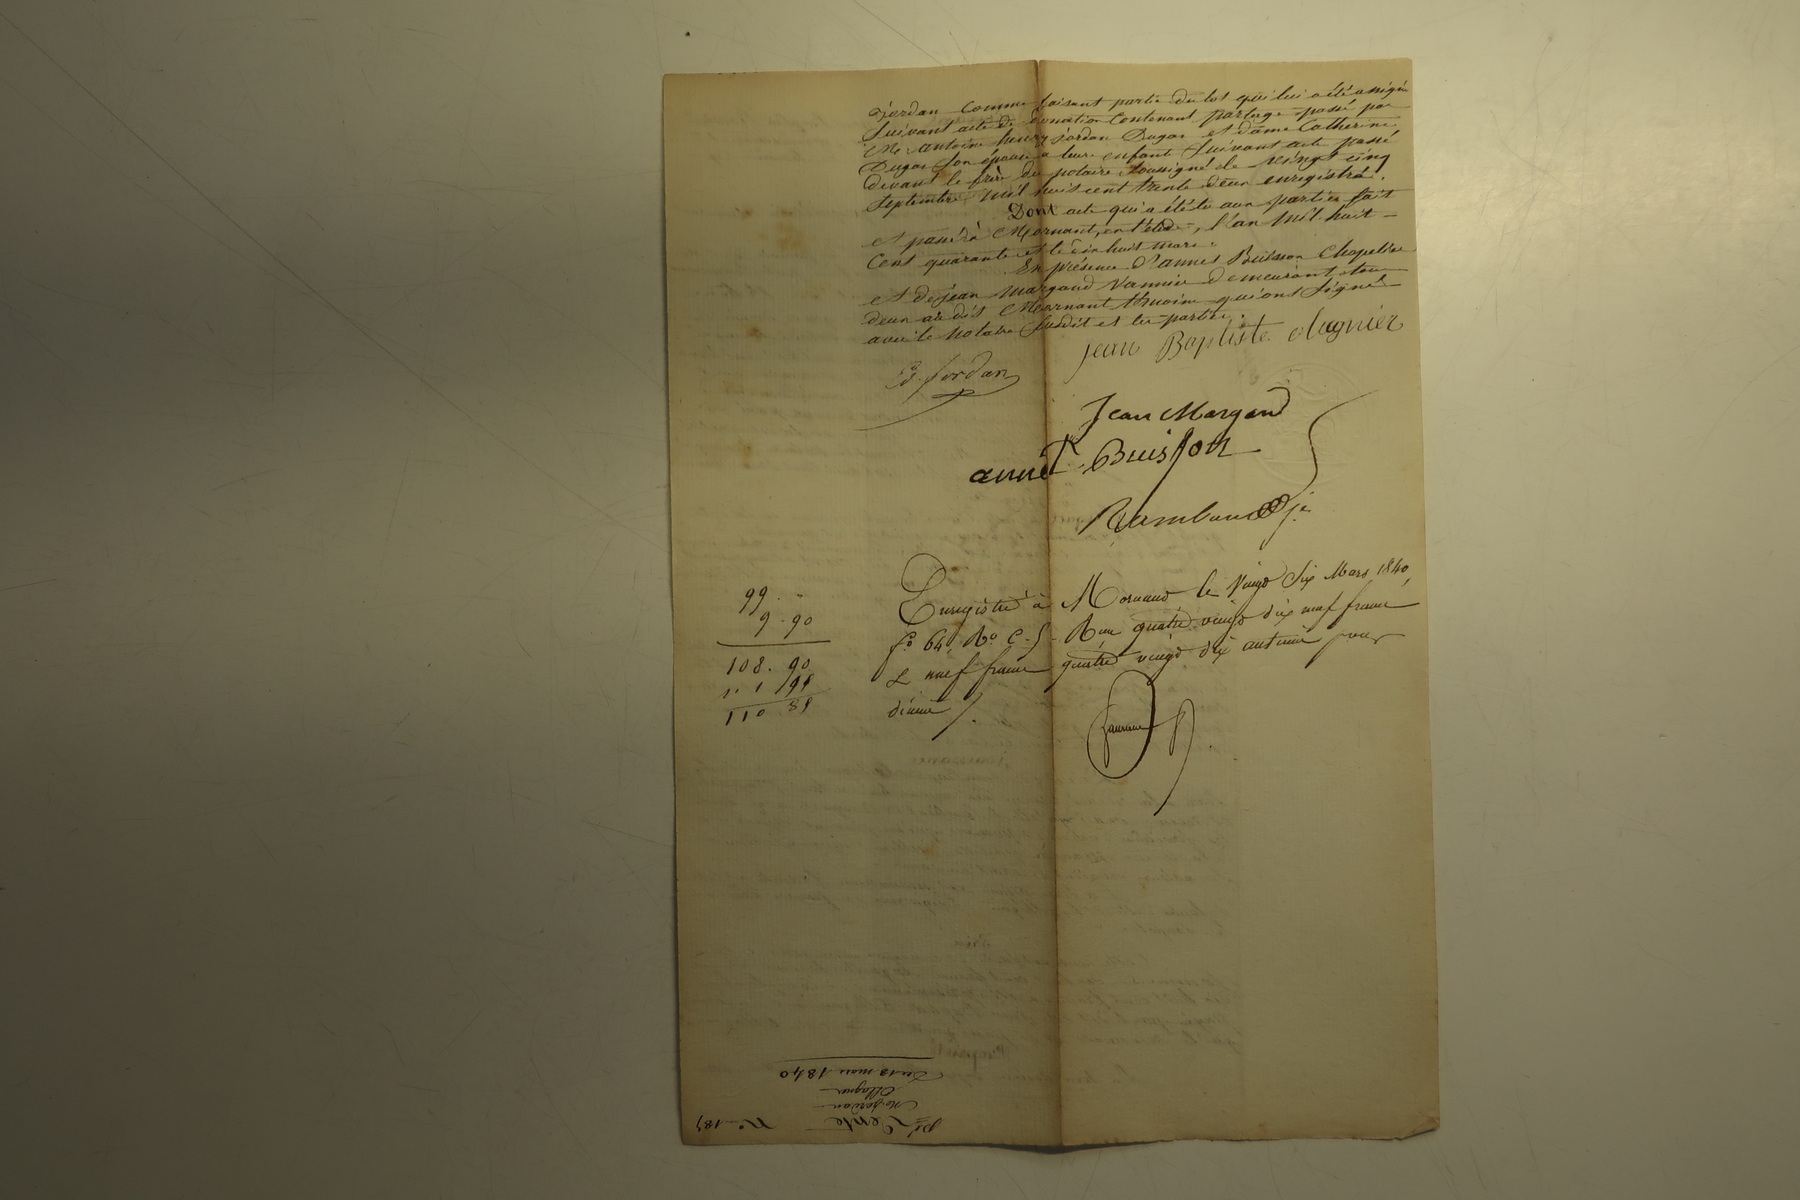 Jordan comme faisant partie du lot qui lui a été assigné
Suivant acte de donation contenant partage passé par
Mr antoine henry jordan Dugas et dame Catherine
Dugas son épouse a leurs enfants Suivant acte passé
devant le frère du notaire soussigné le vingt cinq
Septembre mil huit cent trente deux enregistré.
Dont acte qui a été lu aux parties fait
et passé à Mornant, en l'étude, l'an mil huit
Cent quarante et le dix huit mars.
En présence d'annet Buisson Chapelier
et de jean Margand Vannier demeurant tous
deux au dit Mornant témoins qui ont signé
avec le notaire susdit et les parties.
jean Baptiste Magnier
Jordan
Jean Margand
annet Buisson
Rambaud je
Enregistré à Mornant le Vingt Six Mars 1840,
fo 64, Ro C. 5. Reçu quatre vingt dix neuf francs
& neuf francs quatre vingt dix centimes pour
dixime
99 . "
9 . 90
108 . 90
110 89
Du 18 mars 1840
Magnier
Mr Jordan
Vente
No 187